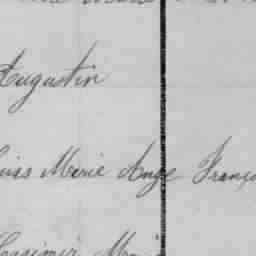 Augustin
Louis Marie Ange Franço
Casimir Ma